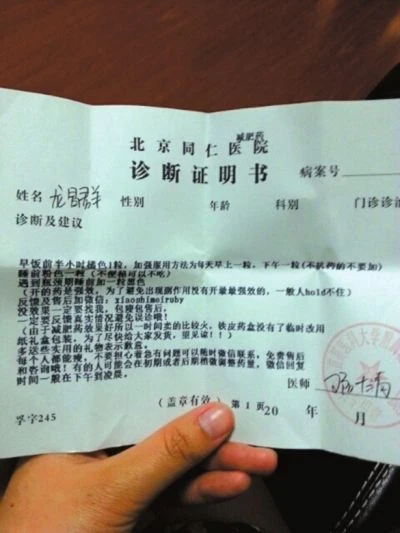 减肥药
北京同仁医院
诊断证明书
病案号
姓名 性别 年龄 科别 门诊诊
诊断及建议
早饭前半小时橘色1粒，加强服用方法为每天早上一粒，下午一粒(不抗药的不要加)
睡前粉色一粒(不便秘可以不吃)
遇到瓶颈期睡前加一粒黑色
(开的药是强效，为了避免出现副作用没有开最最强效的，一般人hold不住)
反馈及售后加微信：xiaoshimeiruby
没效果一定要找我，包瘦包售后，
一定要反馈真实情况避免误诊哦！
(由于减肥药效果好所以一时间卖的比较火，铁皮药盒没有了临时改用
纸礼盒包装，为了尽快给大家发货，望见谅！！)
多送些实用的礼物表示歉意，
每个人都能瘦，不要担心着急有问题可以随时微信联系，免费售后
和咨询哦！有的人可能会在初期或者后期稍微调整药量，微信回复
时间一般在下午到凌晨，
医师
(盖章有效) 第1页20 年 月
245